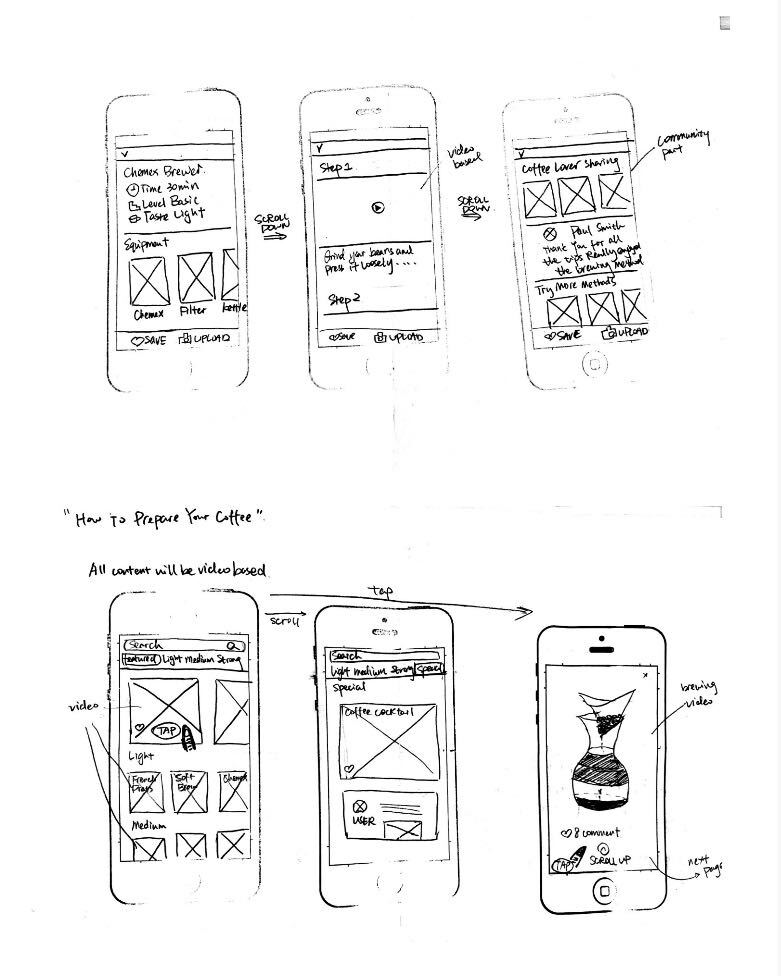 Chemex Brewer.
Time 30min
Level Basic
Taste Light
Equipment
Chemex Filter kettle
SAVE UPLOAD
SCROLL DOWN
Step 1
video based
Grind your beans and
press it loosely....
Step 2
SAVE UPLOAD
SCROLL DOWN
Coffee Lover Sharing
community
part
Paul Smith
Thank you for all
the tips Really enjoyed
the brewing method
Try More Methods
SAVE UPLOAD
"How To Prepare Your Coffee".
All content will be video based.
tap
scroll
Search
Featured Light Medium Strong
video
TAP
Light
French
Press
Soft
Brew
Chemex
Medium
Search
Light medium Strong Special
Special
Coffee cocktail
USER
x
brewing
video
8 comment
TAP
SCROLL UP
next
page